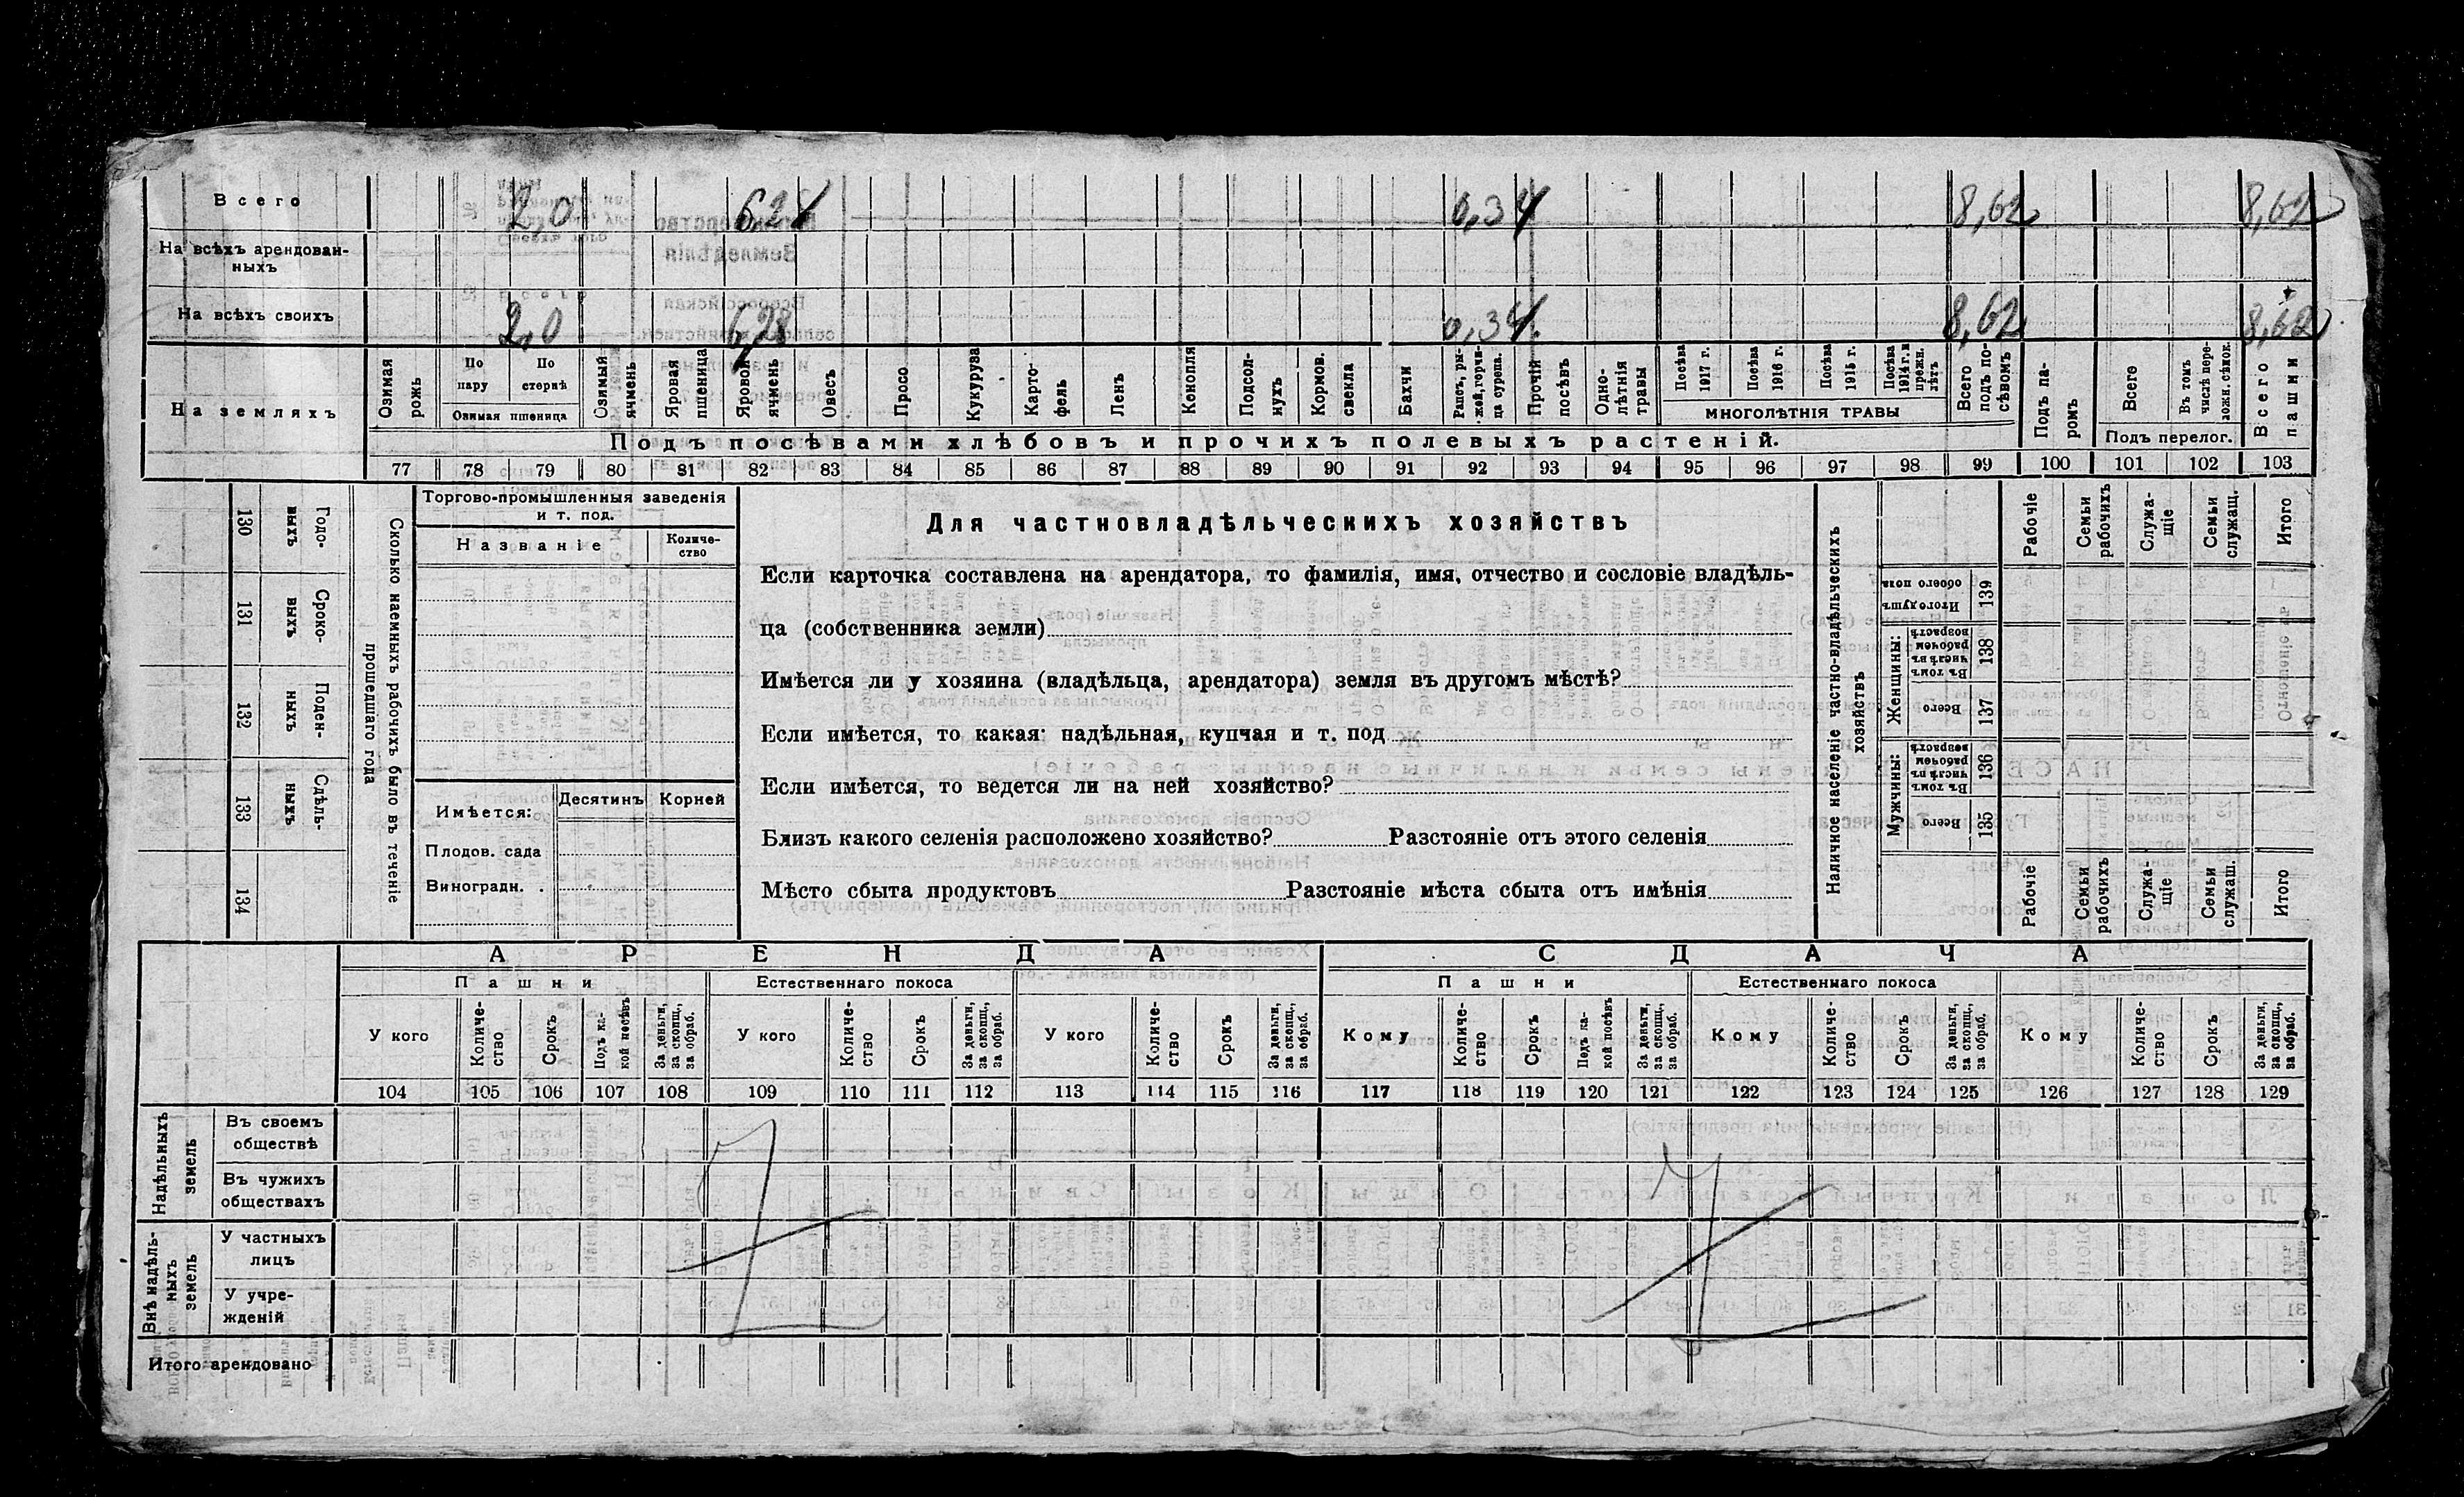 Всего 2,0 6,28 0,34 8,62 8,62
На всѣхъ арендован-
ныхъ
На всѣхъ своихъ 2,0 6,28 0,34 8,62 8,62
На земляхъ
Озимая рожь
По пару
По стернѣ
Озимая пшеница
Озимый ячмень
Яровая пшеница
Яровой ячмень
Овесъ
Просо
Кукуруза
Карто-
фель
Ленъ
Конопля
Подсол-
нухъ
Кормов. свекла
Бахчи
Рапсъ, ры-
жей, горчи-
ца сурепа.
Прочій посѣвъ
Одно-
лѣтнія травы
Посѣва 1917 г.
Посѣва 1916 г.
Посѣва 1915 г.
Посѣва 1914 г. и прежн. лѣтъ
МНОГОЛѢТНІЯ ТРАВЫ
Всего подъ по-
сѣвомъ
Подъ па-
ромъ
Всего
Въ томъ числѣ пере-
ложн. сѣнок.
Подъ перелог.
Всего пашни
Подъ посѣвами хлѣбовъ и прочихъ полевыхъ растеній.
77 78 79 80 81 82 83 84 85 86 87 88 89 90 91 92 93 94 95 96 97 98 99 100 101 102 103
130 Годо-
выхъ
131 Сроко-
выхъ
132 Поден-
ныхъ
133 Сдѣль-
ныхъ
134
Сколько наемныхъ рабочихъ было въ теченіе
прошедшаго года
Торгово-промышленныя заведенія
и т. под.
Названіе
Количе-
ство
Имѣется: Десятинъ Корней
Плодов. сада
Виноградн. .
Для частновладѣльческихъ хозяйствъ
Если карточка составлена на арендатора, то фамилія, имя, отчество и сословіе владѣль-
ца (собственника земли)
Имѣется ли у хозяина (владѣльца, арендатора) земля въ другомъ мѣстѣ?
Если имѣется, то какая: надѣльная, купчая и т. под
Если имѣется, то ведется ли на ней хозяйство?
Близъ какого селенія расположено хозяйство? Разстояніе отъ этого селенія
Мѣсто сбыта продуктовъ Разстояніе мѣста сбыта отъ имѣнія
Наличное населеніе частно-владѣльческихъ
хозяйствъ
Рабочіе
Семьи рабочихъ
Служа-
щіе
Семьи служащ.
Итого
Итого душъ обоего пола 139
Женщины:
Въ томъ числѣ въ рабочемъ возрастѣ 138
Всего 137
Мужчины:
Въ томъ числѣ въ рабочемъ возрастѣ 136
Всего 135
Рабочіе
Семьи рабочихъ
Служа-
щіе
Семьи служащ.
Итого
АРЕНДА СДАЧА
Пашни Естественнаго покоса Пашни Естественнаго покоса
У кого
Количе-
ство
Срокъ
Подъ ка-
кой посѣвъ
За деньги, за скопщ., за обраб.
У кого
Количе-
ство
Срокъ
За деньги, за скопщ., за обраб.
У кого
Количе-
ство
Срокъ
За деньги, за скопщ., за обраб.
Кому
Количе-
ство
Срокъ
Подъ ка-
кой посѣвъ
За деньги, за скопщ., за обраб.
Кому
Количе-
ство
Срокъ
За деньги, за скопщ., за обраб.
Кому
Количе-
ство
Срокъ
За деньги, за скопщ., за обраб.
104 105 106 107 108 109 110 111 112 113 114 115 116 117 118 119 120 121 122 123 124 125 126 127 128 129
Надѣльныхъ
земель
Въ своемъ
обществѣ
Въ чужихъ
обществахъ
Внѣ надѣль-
ныхъ
земель
У частныхъ
лицъ
У учре-
жденій
Итого арендовано